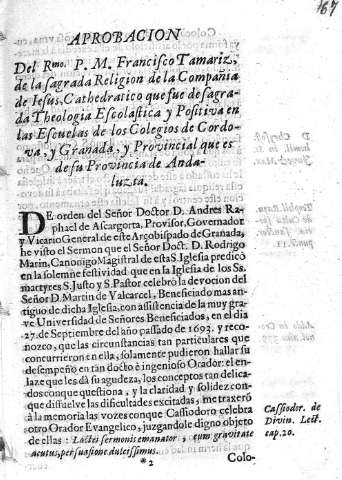 167
APROBACION
Del Rmo. P. M. Francisco Tamariz,
de la sagrada Religion de la Compañia
de Iesus, Cathedratico que fue de sagra-
da Theologia Escolastica y Positiva en
las Escuelas de los Colegios de Cordo-
va, y Granada, y Provincial que es
de su Provincia de Anda-
luzia.
DE orden del Señor Doctor D. Andres Ra-
phael de Ascargorta, Provisor, Governador
y Vicario General de este Arçobispado de Granada,
he visto el Sermon que el Señor Doct. D. Rodrigo
Marin, Canonigo Magistral de esta S. Iglesia predicò
en la solemne festividad que en la Iglesia de los Ss.
martyres S. Justo y S. Pastor celebrò la devocion del
Señor D. Martin de Valcarcel, Beneficiado mas an-
tiguo de dicha Iglesia, con assistencia de la muy gra-
ve Universidad de Señores Beneficiados, en el dia
27. de Septiembre del año passado de 1693. y reco-
nozco, que las circunstancias tan particulares que
concurrieron en ella, solamente pudieron hallar su
desempeño en tan docto è ingenioso Orador: el en-
laze que les dà su agudeza, los conceptos tan delica-
dos conque questiona, y la claridad y solidez con-
que dissuelve las dificultades excitadas, me traxerõ
à la memoria las vozes conque Cassiodoro celebra
otro Orador Evangelico, juzgandole digno objeto
de ellas: Lactei sermonis emanator, cum gravitate
acutus, persuasione dulcissimus.
Cassiodor. de
Divin. Lect.
cap. 20.
*2
Colo-